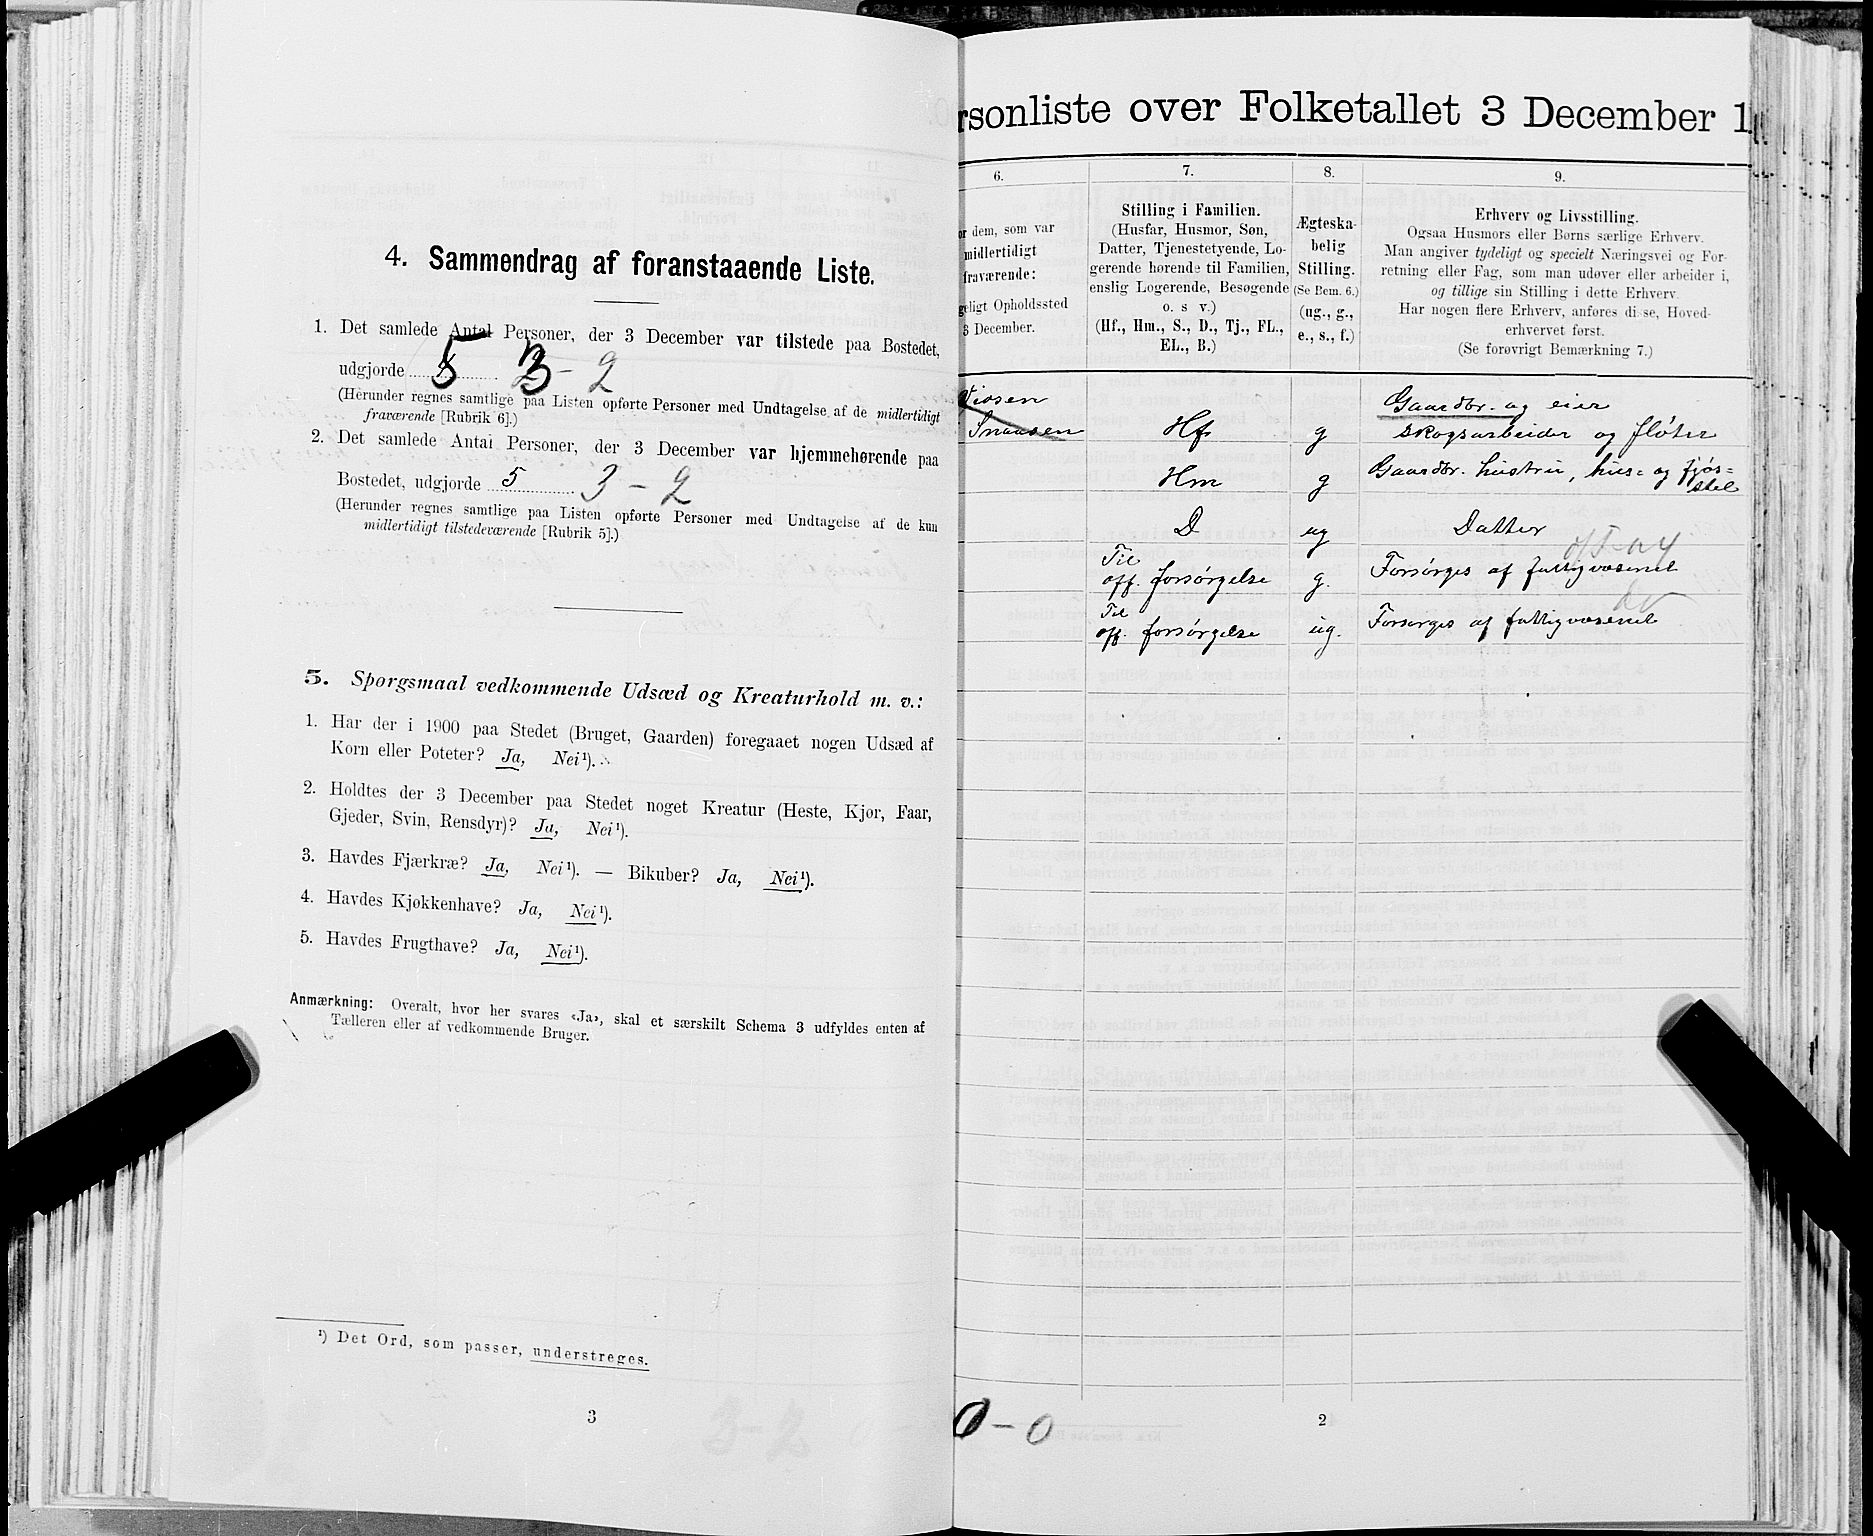 4. Sammendrag af foranstaaende Liste.
1. Det samlede Antal Personer, der 3 December var tilstede paa Bostedet,
udgjorde 5 3 - 2
(Herunder regnes samtlige paa Listen opførte Personer med Undtagelse af de midlertidigt
fraværende [Rubrik 6].)
2. Det samlede Antal Personer, der 3 December var hjemmehørende paa
Bostedet, udgjorde 5 3 - 2
(Herunder regnes samtlige paa Listen opførte Personer med Undtagelse af de kun
midlertidigt tilstedeværende [Rubrik 5].)
5. Spørgsmaal vedkommende Udsæd og Kreaturhold m. v.:
1. Har der i 1900 paa Stedet (Bruget, Gaarden) foregaaet nogen Udsæd af
Korn eller Poteter? Ja, Nei¹).
2. Holdtes der 3 December paa Stedet noget Kreatur (Heste, Kjør, Faar,
Gjeder, Svin, Rensdyr)? Ja, Nei¹).
3. Havdes Fjærkræ? Ja, Nei¹). — Bikuber? Ja, Nei¹).
4. Havdes Kjøkkenhave? Ja, Nei¹).
5. Havdes Frugthave? Ja, Nei¹).
Anmærkning: Overalt, hvor her svares «Ja», skal et særskilt Schema 3 udfyldes enten af
Tælleren eller af vedkommende Bruger.
¹) Det Ord, som passer, understreges.
3
rsonliste over Folketallet 3 December 1
6.
7.
8.
9.
or dem, som var
midlertidigt
fraværende:
geligt Opholdssted
3 December.
Stilling i Familien.
(Husfar, Husmor, Søn,
Datter, Tjenestetyende, Lo-
gerende hørende til Familien,
enslig Logerende, Besøgende
o. s v.)
(Hf., Hm., S., D., Tj., FL.,
EL., B.)
Ægteska-
belig
Stilling.
(Se Bem. 6.)
(ug., g.,
e., s., f.)
Erhverv og Livsstilling.
Ogsaa Husmors eller Børns særlige Erhverv.
Man angiver tydeligt og specielt Næringsvei og For-
retning eller Fag, som man udøver eller arbeider i,
og tillige sin Stilling i dette Erhverv.
Har nogen flere Erhverv, anføres disse, Hoved-
erhvervet først.
(Se forøvrigt Bemærkning 7.)
Gaardbr. og eier
Snaasen Hf g skogsarbeider og fløter
Hm g Gaardbr. hustru, hus= og fjøs=
stel
D ug Datter
Til
off. forsørgelse g. Forsørges af fattigvæsenet
Til
off. forsørgelse ug. Forsørges af fattigvæsenet
0 - 0
2